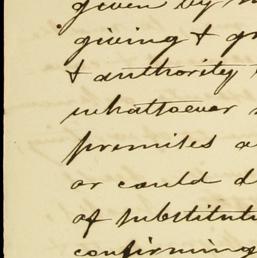 given by
giving &
& authority
whatsoever
premises
or could
of substitut
confirming